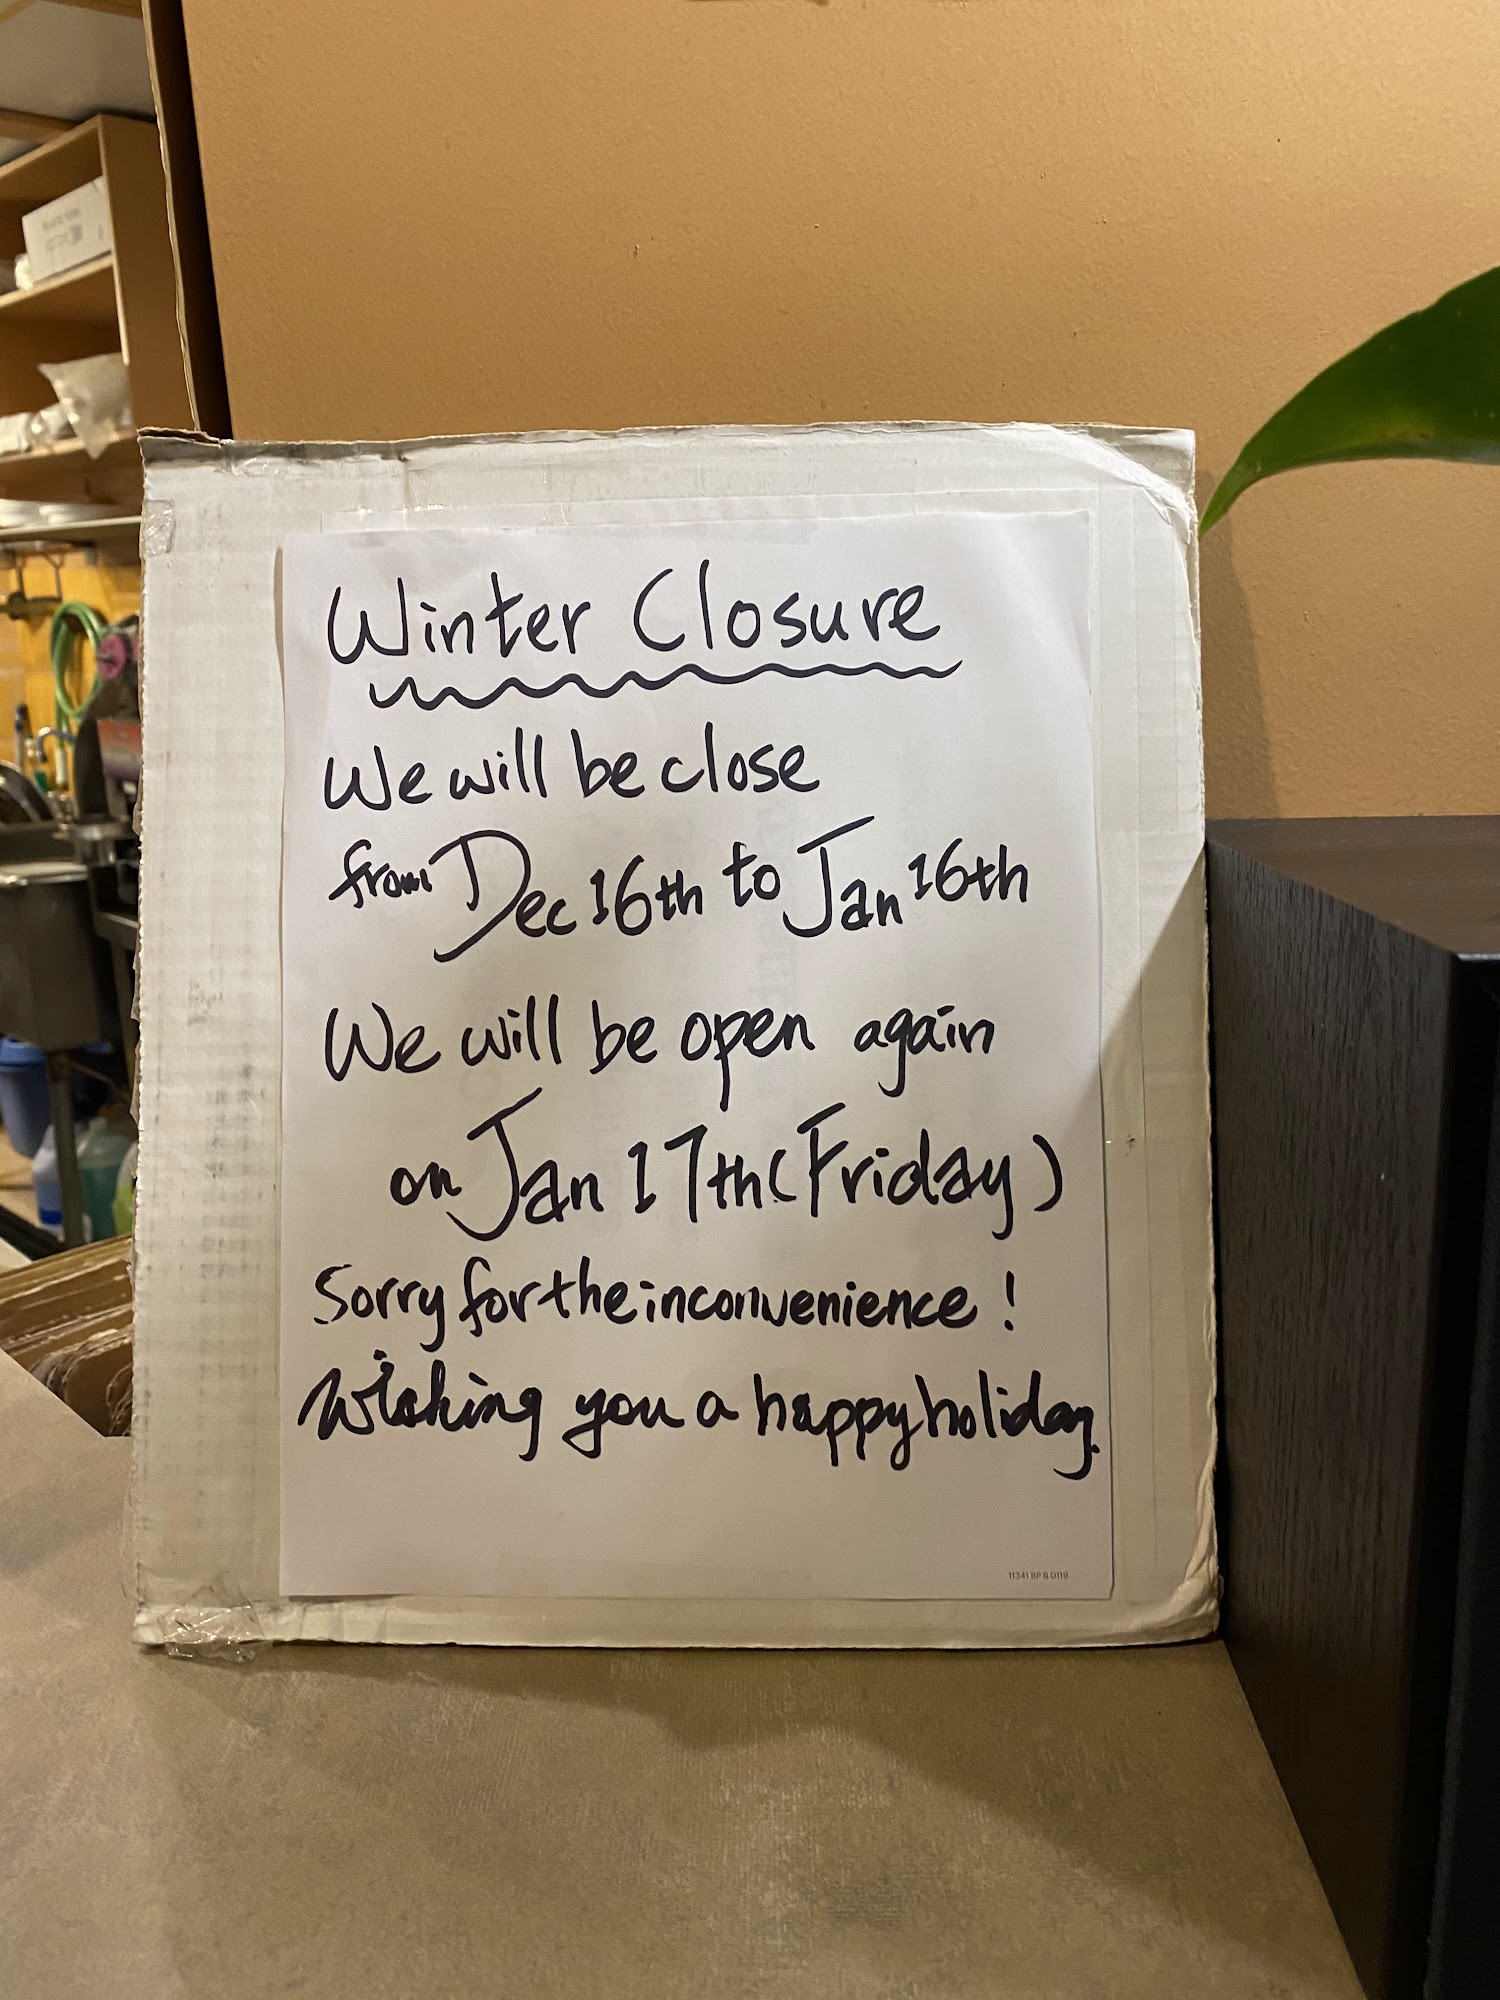 Winter Closure
We will be close
from Dec 16th to Jan 16th
We will be open again
on Jan 17th (Friday)
Sorry for the inconvenience!
Wishing you a happy holiday.
11341 BP B 0119